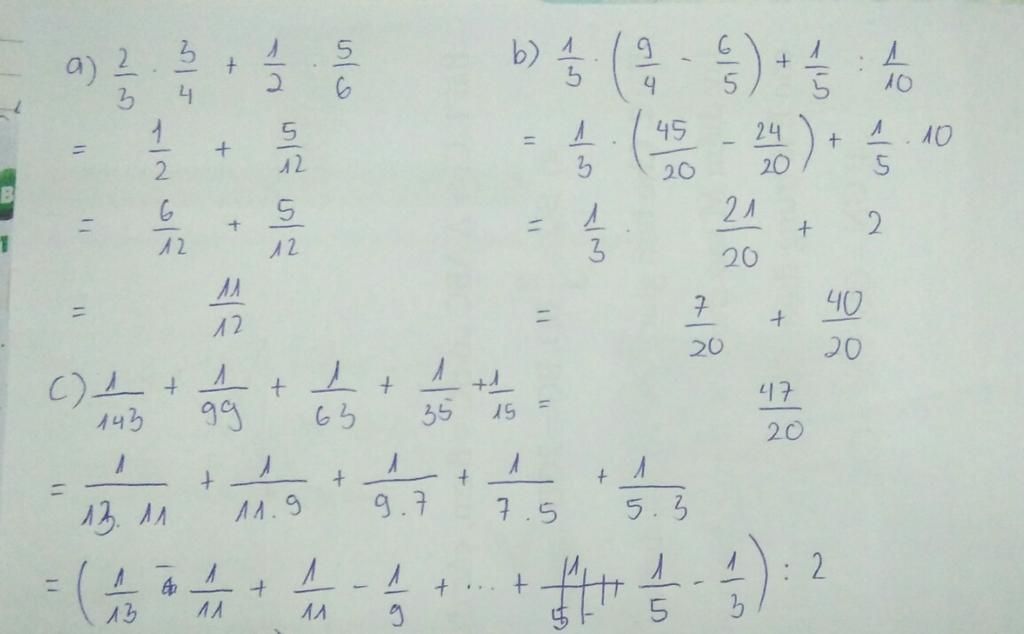 a) 2/3 . 3/4 + 1/2 . 5/6
= 1/2 + 5/12
= 6/12 + 5/12
= 11/12
b) 1/3 . (9/4 - 6/5) + 1/5 : 1/10
= 1/3 . (45/20 - 24/20) + 1/5 . 10
= 1/3 . 21/20 + 2
= 7/20 + 40/20
47/20
c) 1/143 + 1/99 + 1/63 + 1/35 + 1/15 =
= 1/13.11 + 1/11.9 + 1/9.7 + 1/7.5 + 1/5.3
= (1/13 - 1/11 + 1/11 - 1/9 + ... + 1/5 - 1/3) : 2